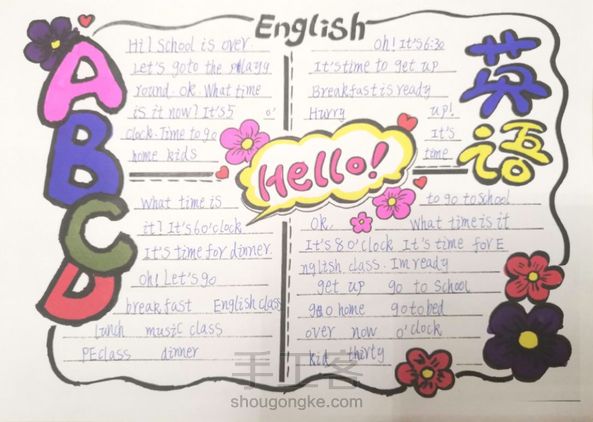 English
英语
A
B
C
D
Hello!
Hi! School is over.
Let's go to the playg
round. ok. What time
is it now? It's 5 o'
clock. Time to go
home kids
oh! It's 6:30
It's time to get up
Breakfast is ready
Hurry up!
It's
time
to go to School
Ok. What time is it
It's 8 o'clock It's time for E
nglish class. I'm ready
get up go to School
go home go to bed
over now o'clock
kid thirty
What time is
it? It's 6 o'clock
It's time for dinner.
Oh! Let's go
breakfast English class
lunch music class
PE class dinner
手工客
shougongke.com